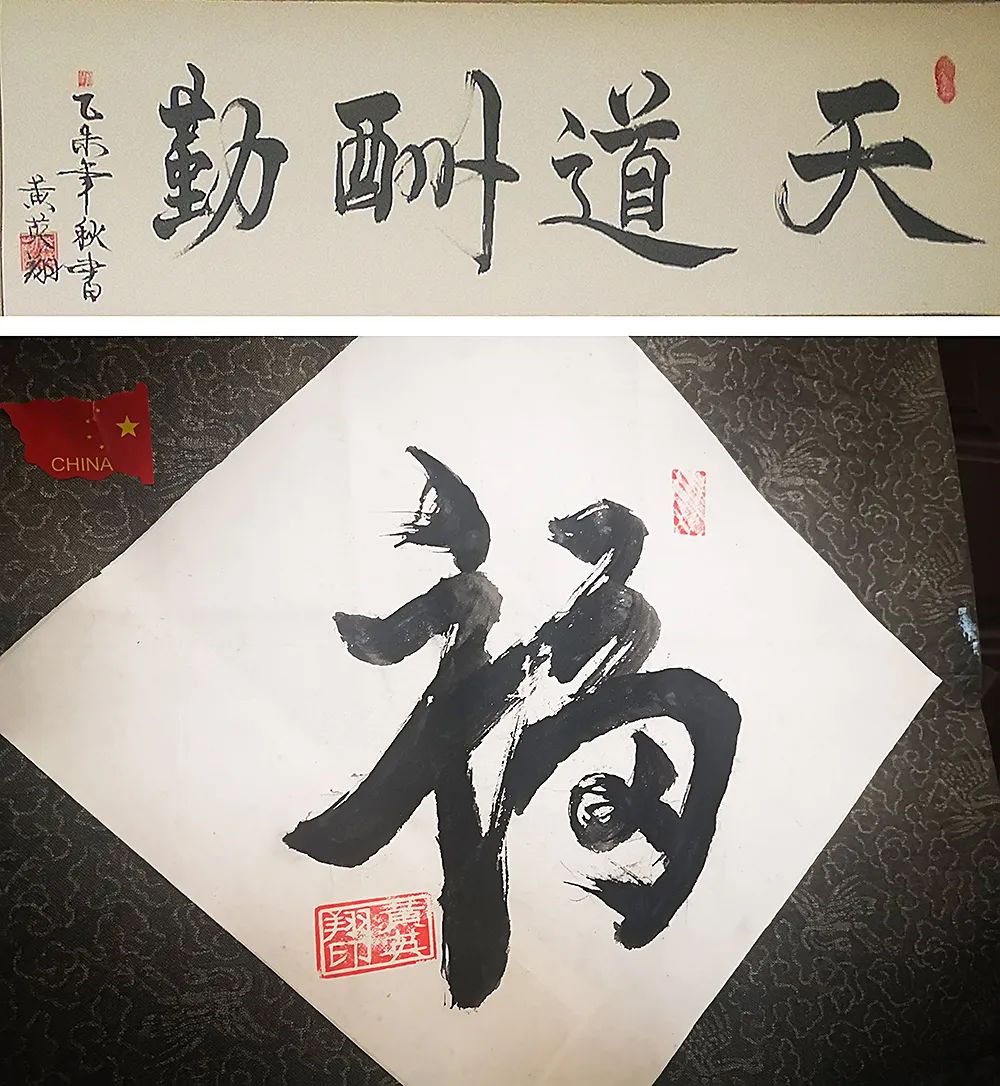 天道酬勤
乙未年秋書
黄英翔
CHINA
福
黄英
翔印